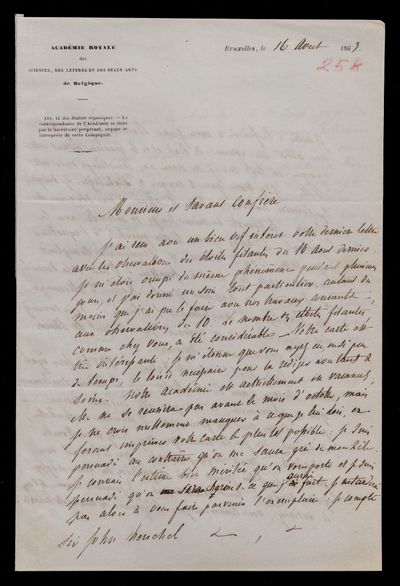 ACADÉMIE ROYALE
des
SCIENCES, DES LETTRES ET DES BEAUX-ARTS
de Belgique.
Bruxelles, le 16 Aout 1863.
258
Art. 14 des Statuts organiques. — La
correspondance de l'Académie se tient
par le secrétaire perpétuel, organe et
interprète de cette Compagnie.
Monsieur et savant confrère
J'ai reçu avec un bien vif intérêt votre dernière lettre
avec les observations des étoiles filantes du 10 Aout dernier
je m'étais occupé du même phénomène pendant plusieurs
jours, et j'ai donné un soin tout particulier, autant du
moins que j'ai pu le faire avec nos travaux
aux observations du 10. Le nombre des étoiles filantes,
comme chez vous, a été considérable. Votre carte est
très intéressante; je m'étonne que vous ayez eu aussi peu
de temps, le loisir nécessaire pour la rédiger avec tant de
soins. Notre Académie est actuellement en vacances;
elle ne se réunira pas avant le mois d'octobre, mais
je ne crois nullement manquer à ce que je lui dois, en
faisant imprimer votre carte le plus tôt possible; je suis
persuadé au contraire qu'on me saura gré de mon zèle
je connais l'estime bien méritée qu'on vous porte et je suis
persuadé qu'on ce que j'aurai fait. je
pas alors à vous faire parvenir l'exemplaire: je compte
Sir John Herschel